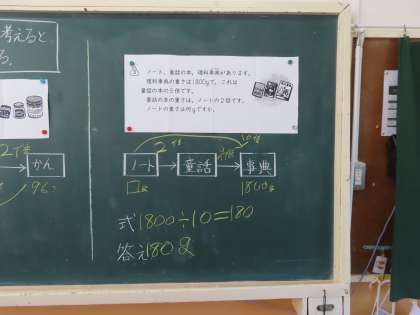 考えると
る。
② ノート、童話の本、理科事典があります。
理科事典の重さは1800gで、これは
童話の本の5倍です。
童話の本の重さは、ノートの2倍です。
ノートの重さは何gですか。
2倍
かん
96
10倍
2倍
5倍
ノート
童話
事典
□g
1800g
式1800÷10=180
答え180g